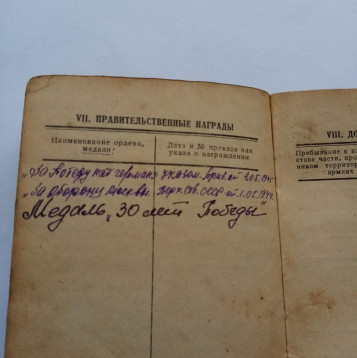 VII. ПРАВИТЕЛЬСТВЕННЫЕ НАГРАДЫ
Наименование ордена,
медали
Дата и № приказа или
указа о награждении
„За победу над герман.
„За оборону Москвы
Верх. Сов. СССР от 1.05.1944
Медаль „30 лет Победы"
VIII. ДО
Пребывание в
стове части, про
ником территор
армиях